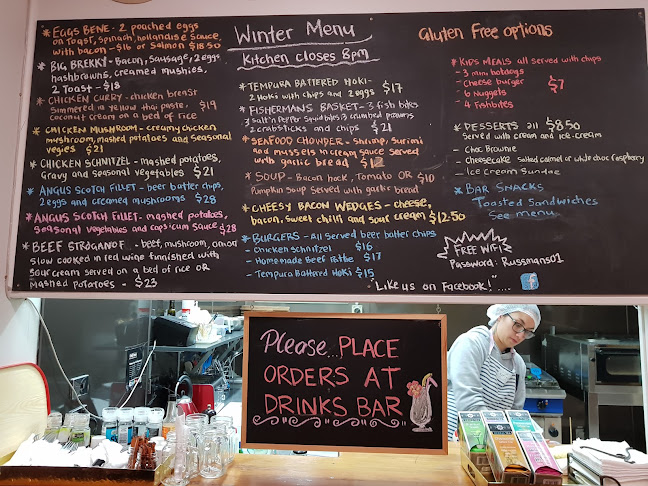 * EGGS BENE - 2 poached eggs
on Toast, spinach, hollandise sauce,
with bacon - $16 or Salmon $18.50
* BIG BREKKY - Bacon, Sausage, 2 eggs
hashbrowns, creamed mushies,
2 Toast - $18
* CHICKEN CURRY - chicken breast
simmered in yellow thai paste,
coconut cream on a bed of rice $19
* CHICKEN MUSHROOM - creamy chicken
mushroom, mashed potatoes and seasonal
vegies $21
* CHICKEN SCHNITZEL - mashed potatoes,
Gravy and seasonal vegetables $21
* ANGUS SCOTCH FILLET - beer batter chips,
2 eggs and creamed mushrooms $28
* ANGUS SCOTCH FILLET - mashed potatoes,
seasonal vegetables and capsicum sauce $28
* BEEF STROGANOF - beef, mushroom, onion
slow cooked in red wine finnished with
sour cream served on a bed of rice OR
mashed potatoes - $23
Winter Menu
Kitchen closes 8pm
* TEMPURA BATTERED HOKI -
2 Hoki with chips and 2 eggs $17
* FISHERMANS BASKET - 3 fish bites
3 salt n pepper squid bites, 3 crumbed prawns
2 crabsticks and chips $21
* SEAFOOD CHOWDER - Shrimp, surimi
and mussels in cream sauce served
with garlic bread
* SOUP - Bacon hock, Tomato OR $10
Pumpkin soup served with garlic bread
* CHEESY BACON WEDGES - cheese,
bacon, sweet chilli and sour cream $12.50
* BURGERS - All served beer batter chips
- Chicken schnitzel $16
- Homemade Beef Pattie $17
- Tempura Battered Hoki $15
"Like us on Facebook!"....
f
Gluten Free options
* KIDS MEALS all served with chips
- 3 mini hotdogs
- Cheese burger $7
- 6 Nuggets
- 4 Fishbites
* DESSERTS all $8.50
Served with cream and ice-cream
- Choc Brownie
- Cheesecake salted calmel or white choc raspberry
- Ice Cream Sundae
* BAR SNACKS
Toasted Sandwiches
See menu
FREE WIFI
Password: Russmans01
Please... PLACE
ORDERS AT
DRINKS BAR